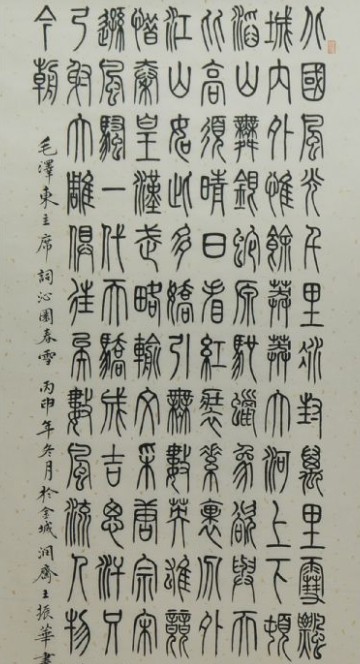 北國風光千里冰封萬里雪飄
城內外惟餘莽莽大河上下頓
滔山舞銀蛇原馳蠟象欲與天
比高須晴日看紅裝素裹分外
江山如此多嬌引無數英雄競
惜秦皇漢武略輸文采唐宗宋
遜風騷一代天驕成吉思汗只
弓射大雕俱往矣數風流人物
今朝
毛澤東主席詞沁園春雪丙申年冬月於金城潤齋王振華書